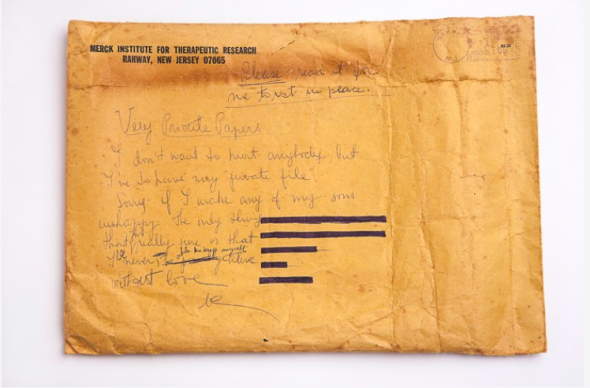 MERCK INSTITUTE FOR THERAPEUTIC RESEARCH
RAHWAY, NEW JERSEY 07065
Please read it for
me to rest in peace.
Very Private Papers
I don't want to hurt anybody but
I've to have my "private file"
Sorry if I make any of my sons
unhappy. The only thing
that really is that
I never myself alive
without love